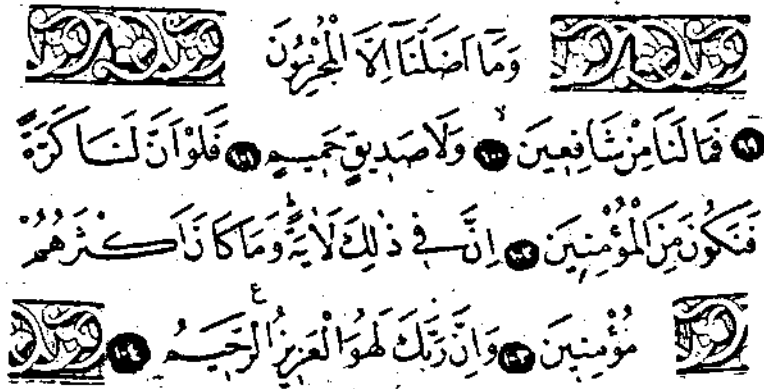 وَمَٓا اَضَلَّنَٓا اِلَّا الْمُجْرِمُونَ
﴿٩٩﴾ فَمَا لَنَا مِنْ شَافِعٖينَۙ ﴿١٠٠﴾ وَلَا صَدٖيقٍ حَمٖيمٍ ﴿١٠١﴾ فَلَوْ اَنَّ لَنَا كَرَّةً
فَنَكُونَ مِنَ الْمُؤْمِنٖينَ ﴿١٠٢﴾ اِنَّ فٖي ذٰلِكَ لَاٰيَةًؕ وَمَا كَانَ اَكْثَرُهُمْ
مُؤْمِنٖينَ ﴿١٠٣﴾ وَاِنَّ رَبَّكَ لَهُوَ الْعَزٖيزُ الرَّحٖيمُࣖ ﴿١٠٤﴾